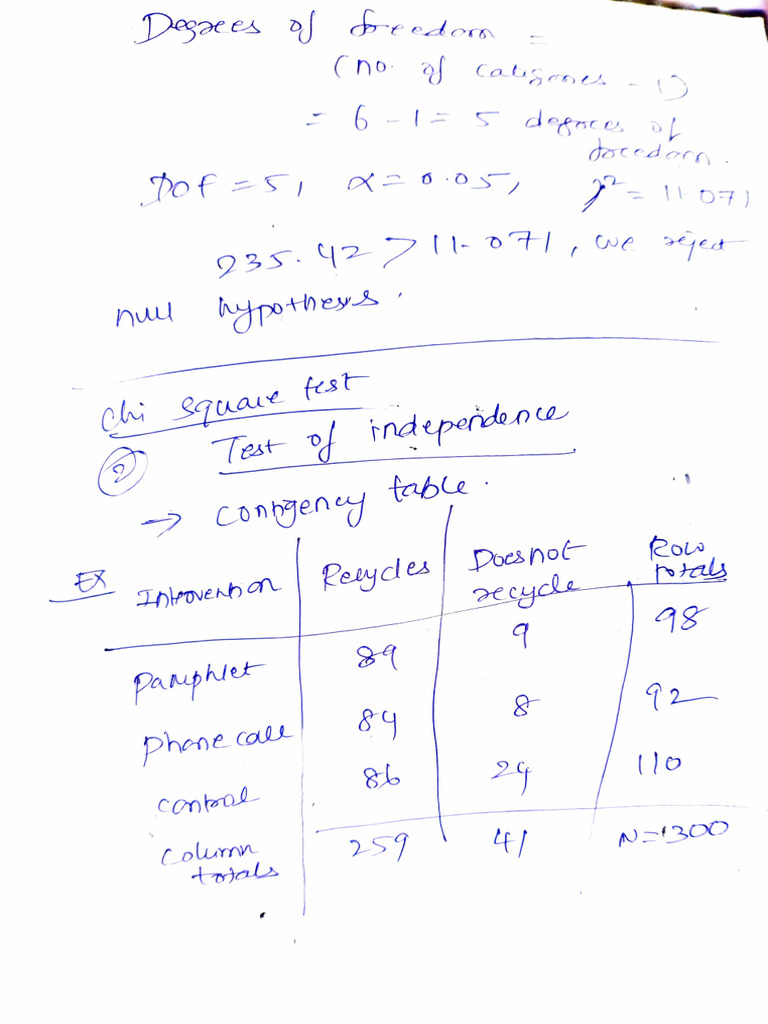 Degrees of freedom =
(no. of categories - 1)
= 6 - 1 = 5 degrees of
freedom.
DOF = 5, α = 0.05, χ² = 11.071
235.42 > 11.071, we reject
null hypothesis.
Chi square test
② Test of independence
→ Contigency table.
Ex Intervention Recycles Does not recycle Row totals
Pamphlet 89 9 98
Phone call 84 8 92
Control 86 24 110
Column totals 259 41 N=300